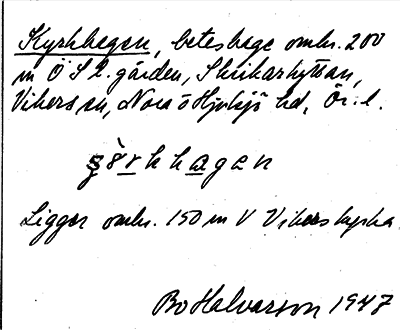 Kyrkhagen, beteshage omkr. 200
m Ö S l. gården, Skrikarhyttan,
Vikers sn, Nora o Hjulsjö hd, Ör. l.
Ligger omkr. 150 m V Vikers kyrka
Bo Halvarson 1947